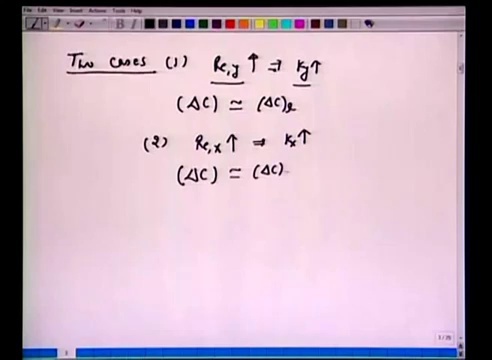 File Edit View Insert Actions Tools Help
Two cases (1) Re,y ↑ ⇒ ky↑
(ΔC) ≃ (ΔC)2
(2) Re,x ↑ ⇒ kx↑
(ΔC) ≃ (ΔC)